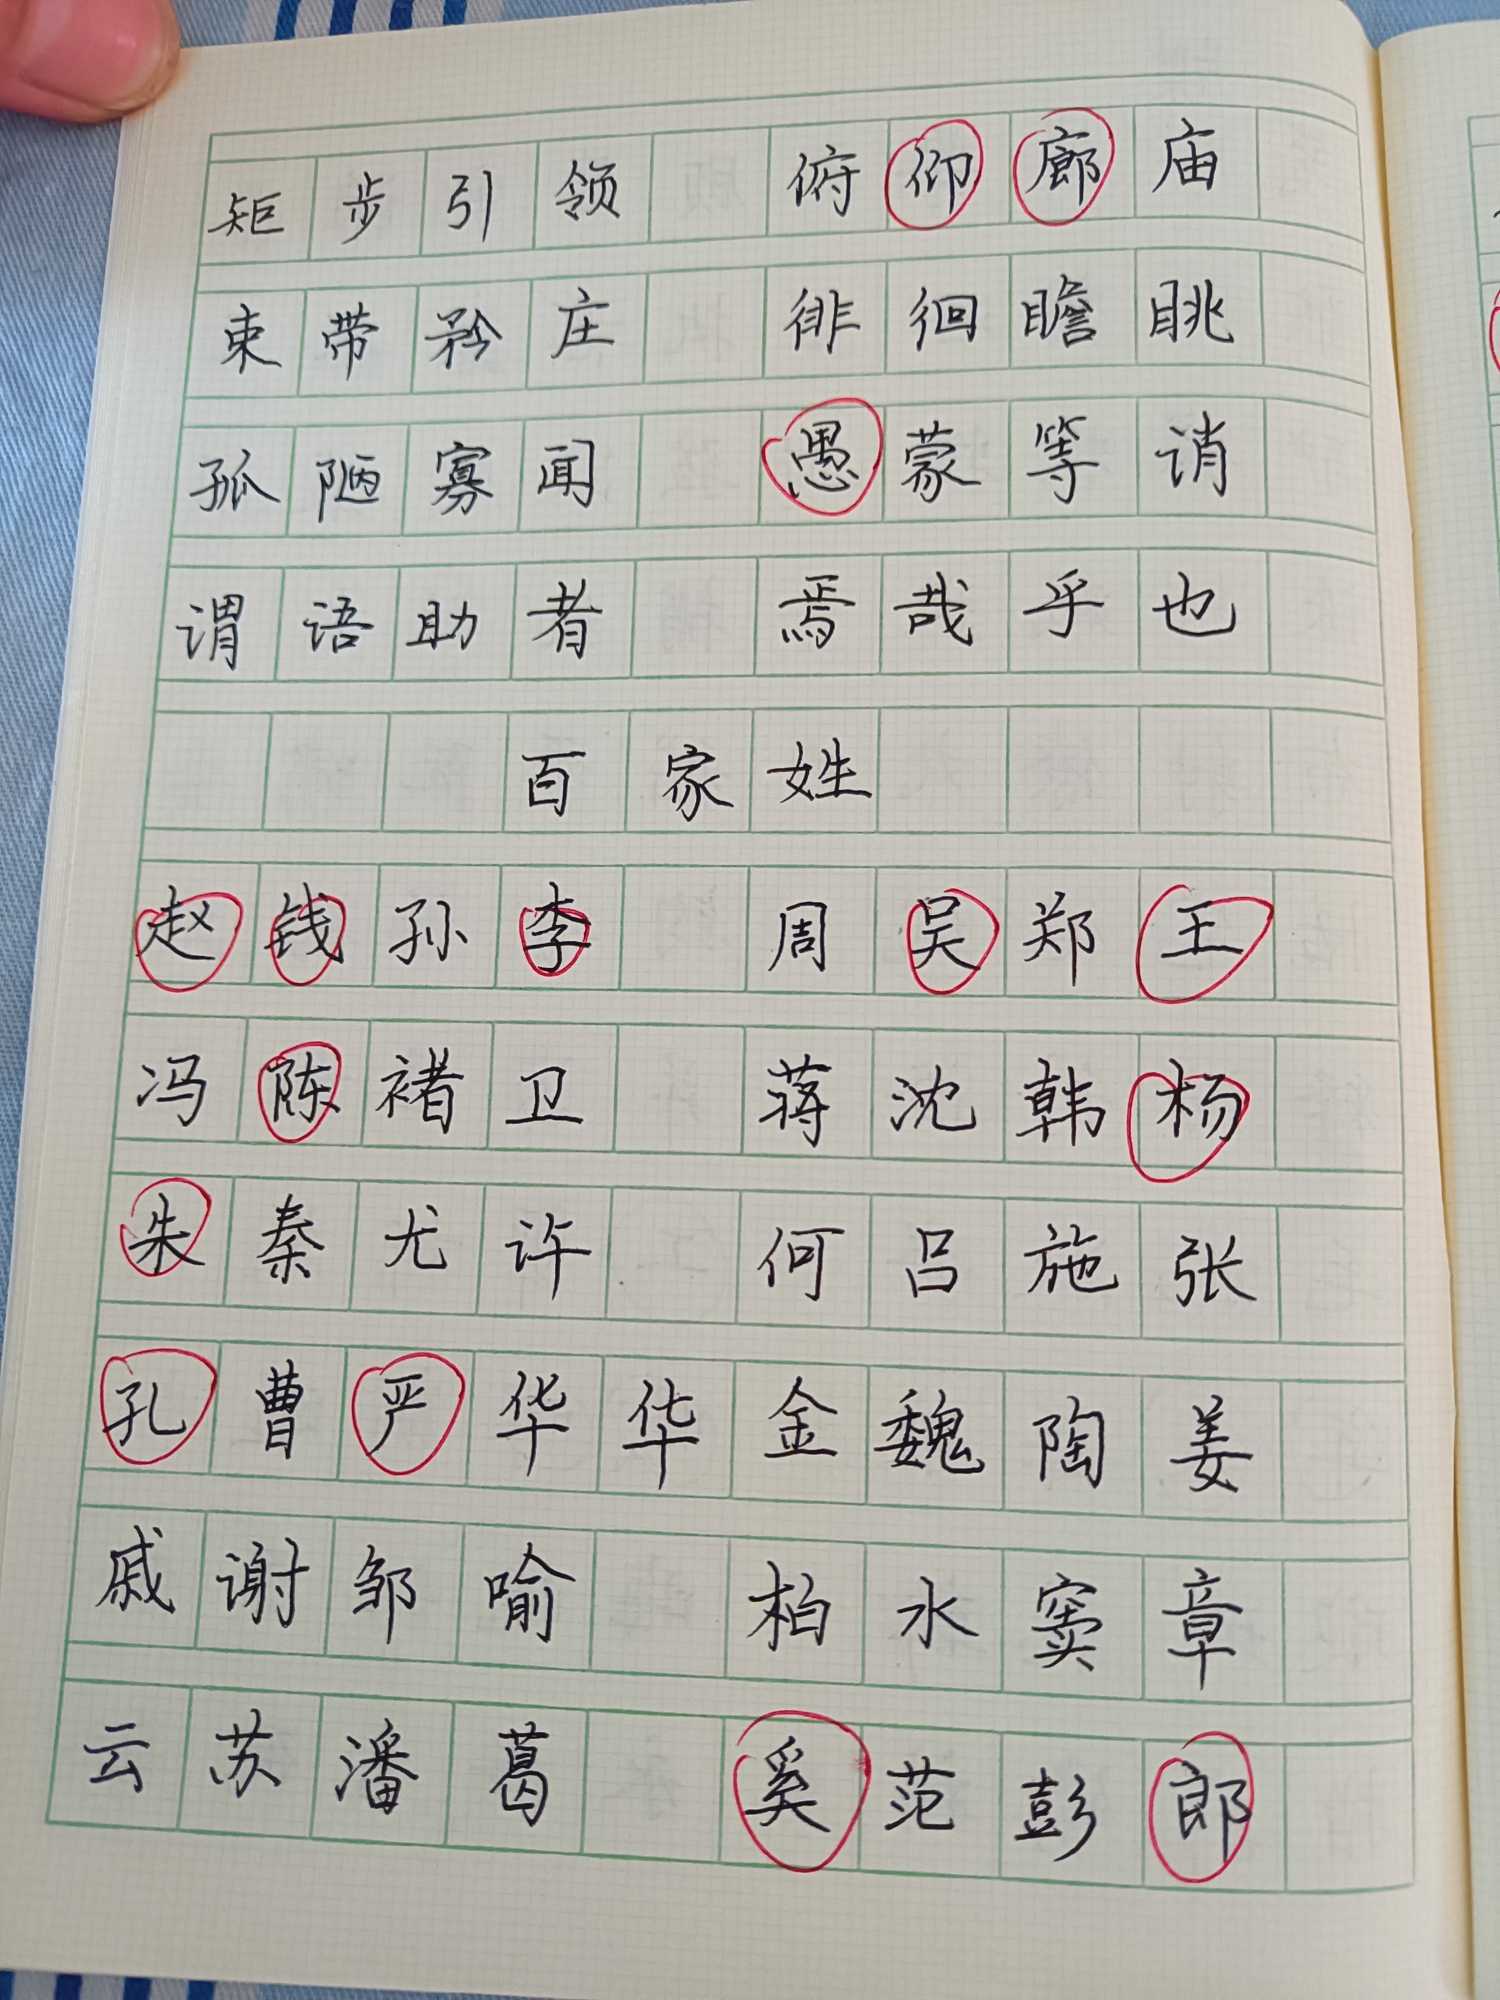 矩步引领 俯仰廊庙
束带矜庄 徘徊瞻眺
孤陋寡闻 愚蒙等诮
谓语助者 焉哉乎也
百家姓
赵钱孙李 周吴郑王
冯陈褚卫 蒋沈韩杨
朱秦尤许 何吕施张
孔曹严华华金魏陶姜
戚谢邹喻 柏水窦章
云苏潘葛 奚范彭郎